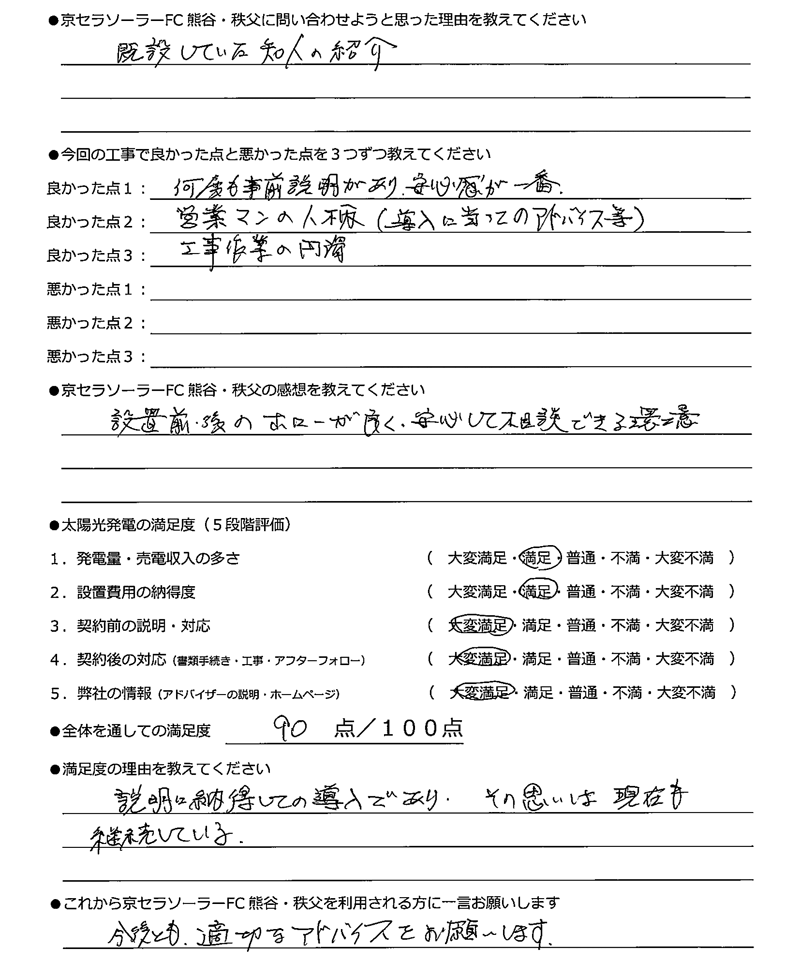 ●京セラソーラーFC 熊谷・秩父に問い合わせようと思った理由を教えてください
既設している知人の紹介
●今回の工事で良かった点と悪かった点を３つずつ教えてください
良かった点１： 何度も事前説明があり、安心感が一番.
良かった点２： 営業マンの人柄（導入に当ってのアドバイス等）
良かった点３： 工事作業の円滑
悪かった点１：
悪かった点２：
悪かった点３：
●京セラソーラーFC 熊谷・秩父の感想を教えてください
設置前・後のホローが良く、安心して相談できる環境
●太陽光発電の満足度（５段階評価）
１．発電量・売電収入の多さ （ 大変満足・満足・普通・不満・大変不満 ）
２．設置費用の納得度 （ 大変満足・満足・普通・不満・大変不満 ）
３．契約前の説明・対応 （ 大変満足・満足・普通・不満・大変不満 ）
４．契約後の対応（書類手続き・工事・アフターフォロー） （ 大変満足・満足・普通・不満・大変不満 ）
５．弊社の情報（アドバイザーの説明・ホームページ） （ 大変満足・満足・普通・不満・大変不満 ）
●全体を通しての満足度 90 点／１００点
●満足度の理由を教えてください
説明に納得しての導入であり、その思いは現在も
継続している.
●これから京セラソーラーFC 熊谷・秩父を利用される方に一言お願いします
今後とも、適切なアドバイスをお願いします.